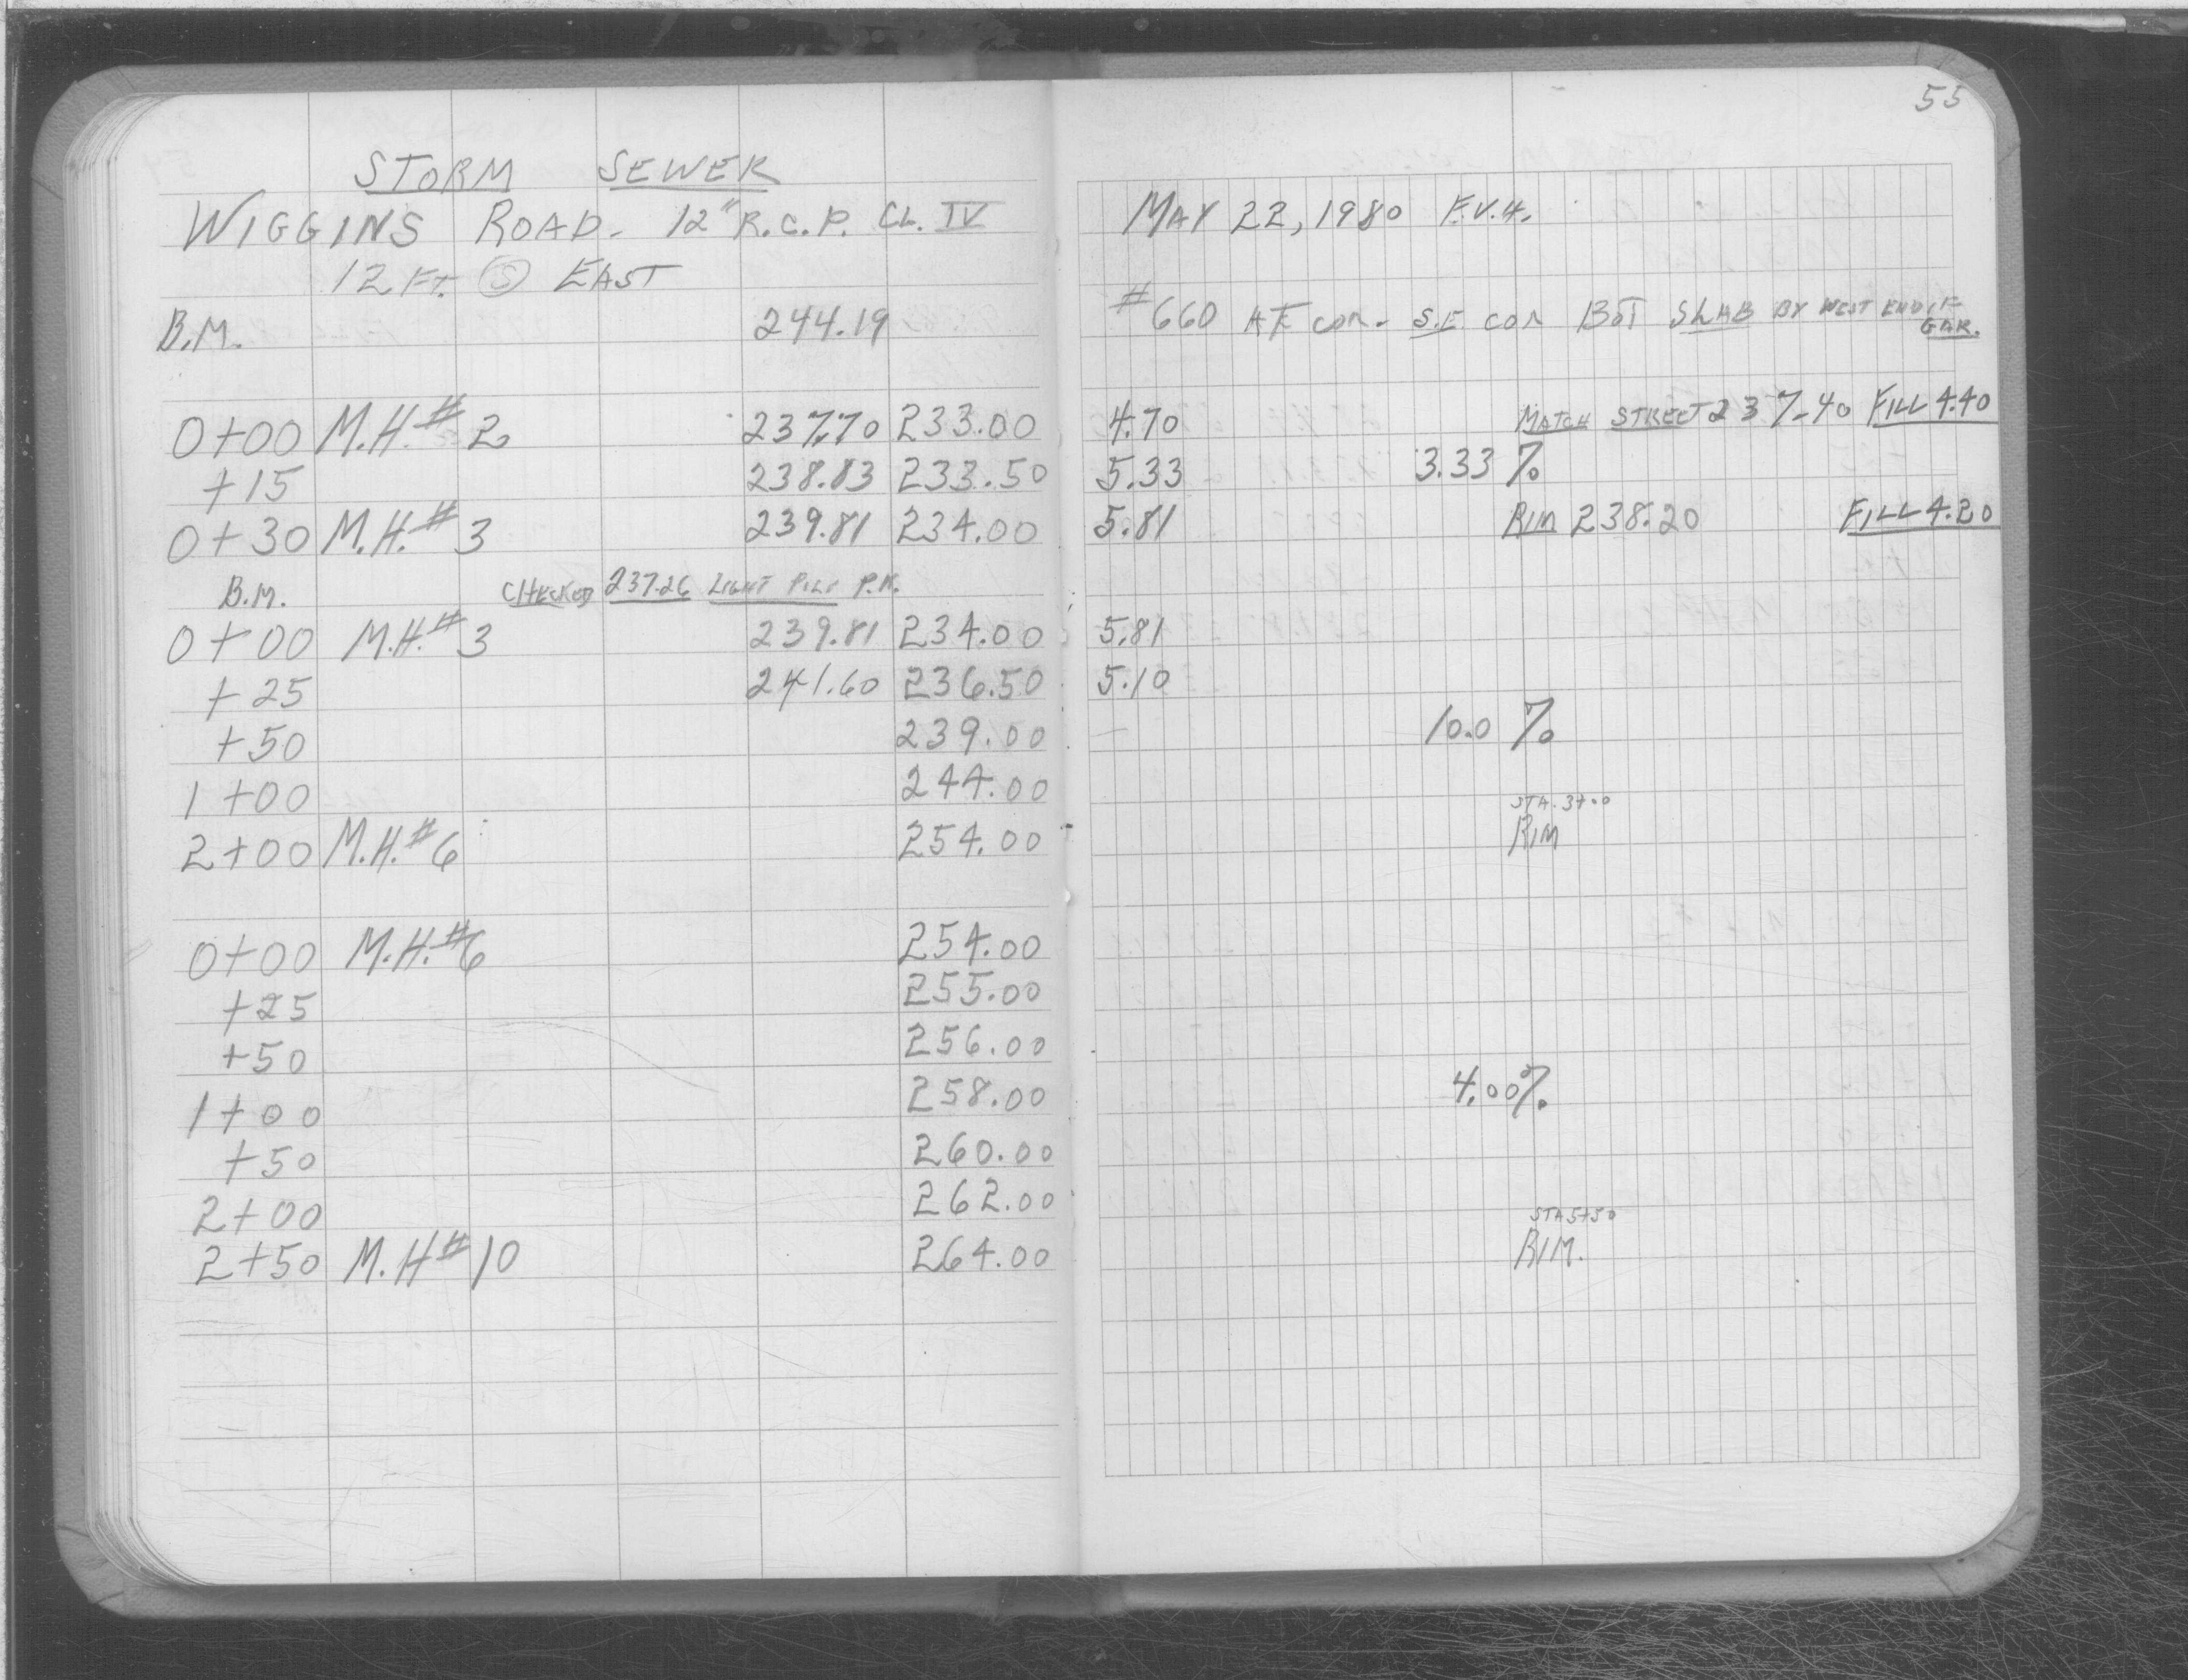 55
STORM SEWER
WIGGINS ROAD - 12" R.C.P. CL. IV
12 FT. (S) EAST
B.M. 244.19
0+00 M.H.# 2 237.70 233.00
+15 238.83 233.50
0+30 M.H.# 3 239.81 234.00
B.M. CHECKED 237.26 LIGHT POLE P.K.
0+00 M.H.# 3 239.81 234.00
+25 241.60 236.50
+50 239.00
1+00 244.00
2+00 M.H.#6 254.00
0+00 M.H.#6 254.00
+25 255.00
+50 256.00
1+00 258.00
+50 260.00
2+00 262.00
2+50 M.H#10 264.00
MAY 22, 1980 F.V.H.
#660 COR. S.E COR BOT SLAB BY WEST END
GAR.
4.70 MATCH STREET 237.40 FILL 4.40
5.33 3.33 %
5.81 RIM 238.20 FILL 4.20
5.81
5.10
10.0 %
STA. 3+00
RIM
4.00%
STA 5+50
RIM.